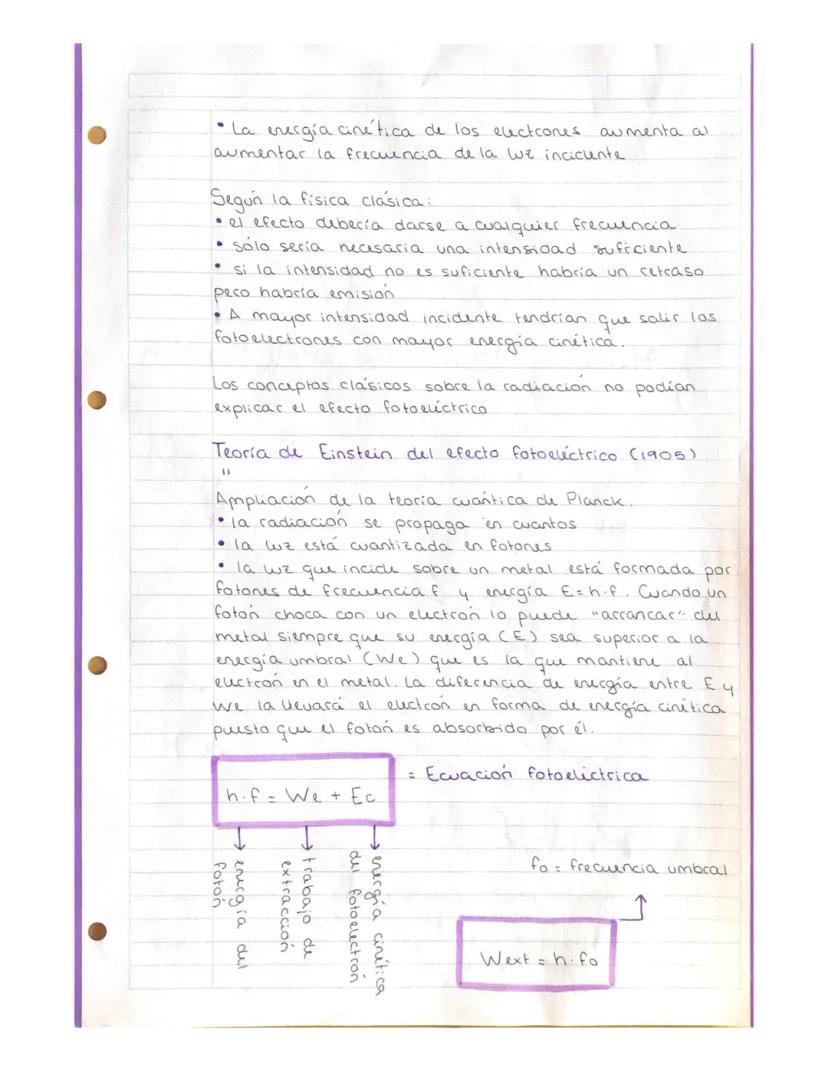 • La energía cinética de los electrones aumenta al
aumentar la frecuencia de la luz incidente
Según la física clásica:
• el efecto debería darse a cualquier frecuencia
• sólo sería necesaria una intensidad suficiente
• si la intensidad no es suficiente habría un retraso
pero habría emisión
• A mayor intensidad incidente tendrían que salir los
fotoelectrones con mayor energía cinética.
Los conceptos clásicos sobre la radiación no podían
explicar el efecto fotoeléctrico
Teoría de Einstein del efecto fotoeléctrico (1905)
"
Ampliación de la teoría cuántica de Planck.
• la radiación se propaga en cuantos
• la luz está cuantizada en fotones
• la luz que incide sobre un metal está formada por
fotones de frecuencia f y energía E=h·f. Cuando un
fotón choca con un electrón lo puede "arrancar" del
metal siempre que su energía (E) sea superior a la
energía umbral (We) que es la que mantiene al
electrón en el metal. La diferencia de energía entre E y
We la llevará el electrón en forma de energía cinética
puesto que el fotón es absorbido por él.
h·f = We + Ec
= Ecuación fotoeléctrica
energía del
fotón
trabajo de
extracción
energía cinética
del fotoelectrón
fo = frecuencia umbral
Wext = h·fo